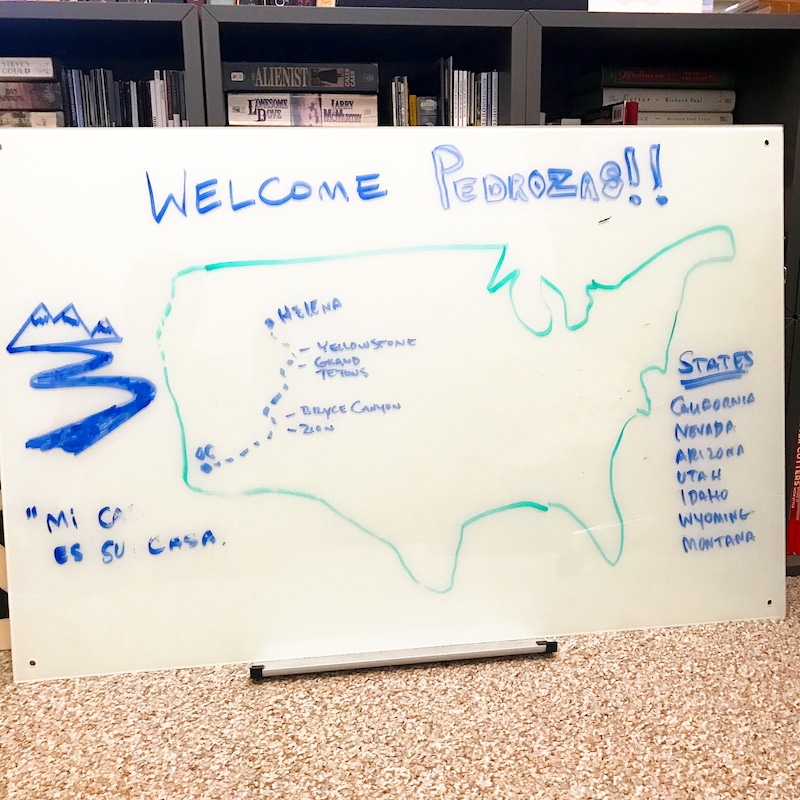 STEVEN GOULD
ALIENIST
CALEB CARR
LONESOME DOVE
LARRY MCMURTRY
Carter - Richard Paul
WELCOME PEDROZAS!!
HELENA
- YELLOWSTONE
- GRAND
TETONS
- BRYCE CANYON
- ZION
OC
"MI CA
ES SU CASA.
STATES
CALIFORNIA
NEVADA
ARIZONA
UTAH
IDAHO
WYOMING
MONTANA